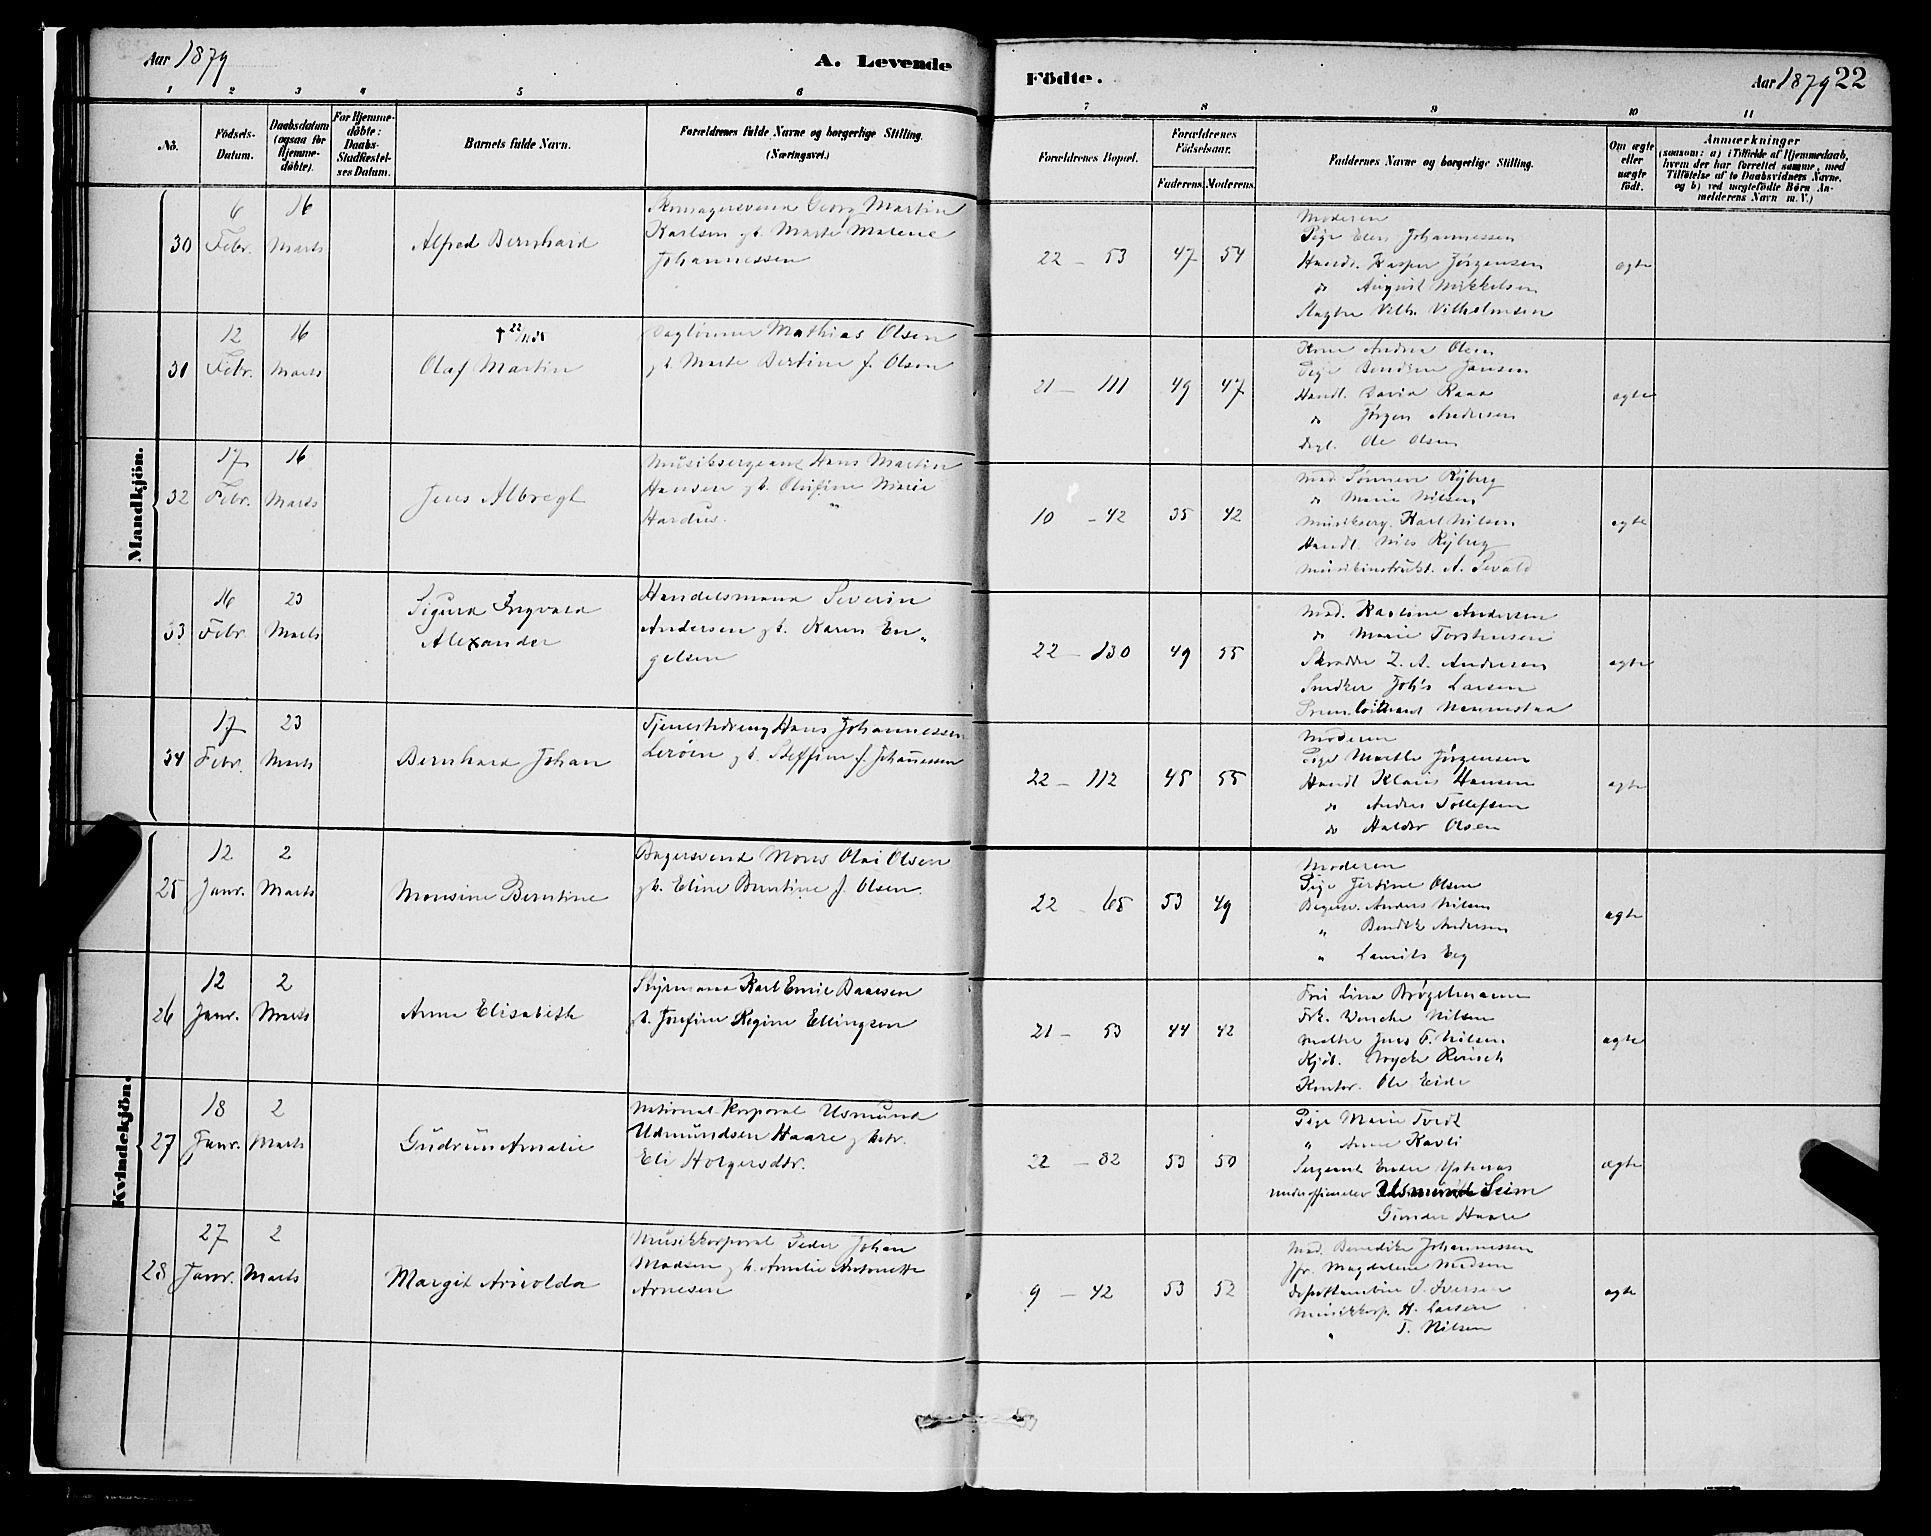 Aar 1879
A. Levende
Födte.
Aar 1879 22
1 2 3 4 5 6 7 8 9 10 11
No.
Födsels-Datum.
Daabsdatum (ogsaa for Hjemme-döbte).
For Hjemme-döbte: Daabs-Stadfæstel-ses Datum.
Barnets fulde Navn.
Forældrenes fulde Navne og borgerlige Stilling. (Næringsvei.)
Forældrenes Bopæl.
Forældrenes Födselsaar.
Faderens. Moderens.
Faddernes Navne og borgerlige Stilling.
Om ægte eller uægte födt.
Anmærkninger
(saasom: a) i Tilfælde af Hjemmedaab, hvem der har forrettet samme, med Tilföielse af to Daabsvidners Navne, og b) ved uægtefödte Börn An-melderens Navn m. V.)
Mandkjön.
30
6 Febr.
16 Marts
Alfred Bernhard
Skomagersvend Georg Martin
Karlsen g b. Marte Malene
Johannessen
22 - 53
47 54
Moderen
Pige Elen Johannessen
Handl. Kasper Jørgensen
do August Mikkelsen
Vilh. Vilhelmsen
ægte
31
12 Febr.
16 Marts
Olaf Martin
Daglønner Mathias Olsen
g b. Marte Bertine f. Olsen
21 - 111
49 47
Kone Andrea Olsen
Pige Jansen
Handl. David Raaa
do Jørgen Andersen
Dagl. Ole Olsen
ægte
32
17 Febr.
16 Marts
Jens Albregt
Musiksergeant Hans Martin
Hansen g b. Olufine Marie
10 - 42
35 42
Mad. Ryberg
do Marie Nilsen
Musikserg. Karl Nilsen
Handl. Nils Ryberg
Musikinstrukt. A. Sevald
ægte
33
16 Febr.
23 Marts
Sigurd Ingvald
Alexander
Handelsmand Severin
Andersen g b. Karen En-
gelsen
22 - 130
49 55
Mad. Karline Andersen
do Marie Torstensen
Skrædder Z. A. Andersen
Snedker Johs Larsen
ægte
34
17 Febr.
23 Marts
Bernhard Johan
Tjenestedreng Hans Johannessen
Lerøen g b. Steffine f. Johanessen
22 - 112
45 55
Moderen
Pige Marthe Jørgensen
Handl Klaus Hansen
do Andreas Tollefsen
do Haldor Olsen
ægte
Kvindekjön.
25
12 Janr.
2 Marts
Monsine Berntine
Bagersvend Mons Olai Olsen
g b. Eline Berntine f. Olsen
22 - 65
53 49
Moderen
Pige Jertine Olsen
Bagersv. Anders Nilsen
" Bendik Andersen
" Lauritz Eeg
ægte
26
12 Janr.
2 Marts
Anne Elisabeth
Styrmand Karl Emil Baarsen
g b. Josefine Regine Ellingsen
21 - 53
44 42
Fru Lina Brøgelmann
Frk. Wenche Nilsen
Jens F. Nilsen
Kjøb.
Kontor. Ole Eide
ægte
27
18 Janr.
2 Marts
Gudrun Amalie
National-Korporal Usmund
Udmundsen Haare g hstr.
Eli Holgersdtr.
22 - 82
53 50
Pige Marie Tvedt
" Anne Kavli
Sergeant
Underofficerelev Usmund Seim
Gunder Haare
ægte
28
27 Janr.
2 Marts
Margit Arnolda
Musikkorporal Peder Johan
Madsen g b. Amalie Antonette
Arnesen
9 - 42
53 52
Mad. Benedikte Johannessen
Jfr. Magdalene Madsen
I. Iversen
Musikkorp. H. Larsen
" T. Nilsen
ægte